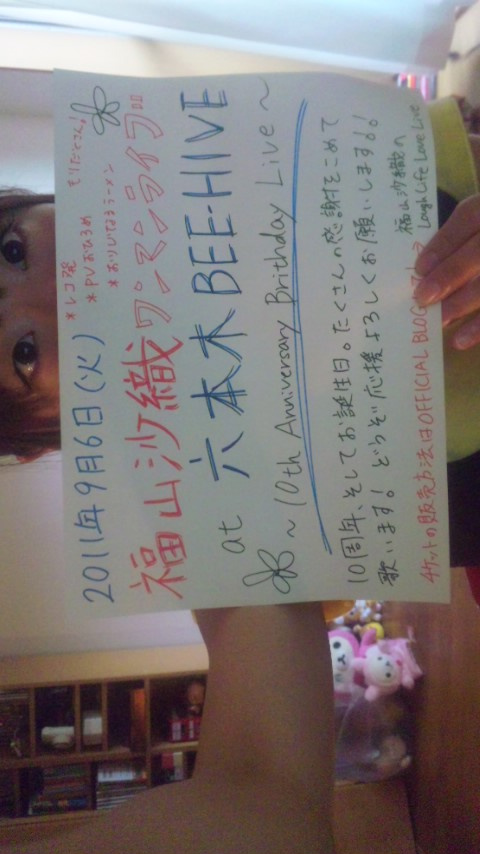 2011年9月6日(火)
*レコ発
*PVおひろめ
*おりじなるラーメン
もりだくさん!
福山沙織ワンマンライブ!!!
at 六本木BEE-HIVE
~10th Anniversary Brithday Live~
10周年、そしてお誕生日。たくさんの感謝をこめて
歌います!どうぞ応援よろしくお願いします!!
チケットの販売方法はOFFICIAL BLOG
福山沙織の
Laugh Life Love Live